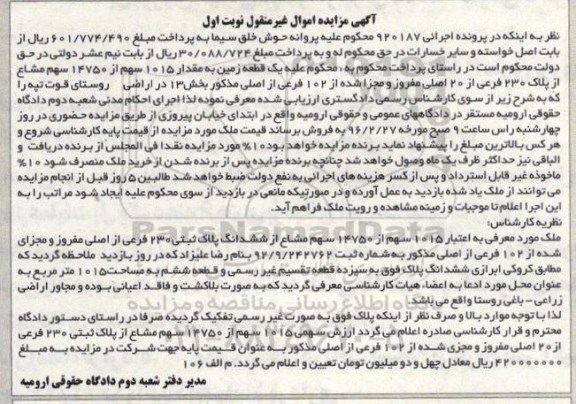 آگهی مزایده اموال غیرمنقول نوبت اول
نظر به اینکه در پرونده اجرائی ۹۲۰۱۸۷ محکوم علیه پروانه حوش خلق سیما به پرداخت مبلغ ۶۰۱/۷۷۴/۴۹۰ ریال از
بابت اصل خواسته و سایر خسارات در حق محکوم له و به پرداخت مبلغ ۳۰/۰۸۸/۷۲۴ ریال از بابت نیم عشر دولتی در حق
دولت محکوم است در راستای پرداخت محکوم به ، محکوم علیه یک قطعه زمین به مقدار ۱۰۱۵ سهم از ۱۴۷۵۰ سهم مشاع
از پلاک ۲۳۰ فرعی از ۲۰ اصلی مفروز و مجزا شده از ۱۰۲ فرعی از اصلی مذکور بخش ۱۳ در اراضی روستای قوت تپه را
که به شرح زیر از سوی کارشناس رسمی دادگستری ارزیابی شده معرفی نموده لذا اجرای احکام مدنی شعبه دوم دادگاه
حقوقی ارومیه مستقر در دادگاههای عمومی و حقوقی ارومیه واقع در ابتدای خیابان پیروزی از طریق مزایده حضوری در روز
چهارشنبه راس ساعت ۹ صبح مورخه ۹۶/۲/۲۷ به فروش برساند قیمت ملک مورد مزایده از قیمت پایه کارشناسی شروع و
هر کس بالاترین مبلغ را پیشنهاد نماید برنده مزایده خواهد بود ۱۰% مورد مزایده نقدا فی المجلس از برنده دریافت و
الباقی نیز حداکثر ظرف یک ماه وصول خواهد شد چنانچه برنده مزایده پس از برنده شدن از خرید ملک منصرف شود ۱۰%
ماخوذه غیر قابل استرداد و پس از کسر هزینه های اجرائی به نفع دولت ضبط خواهد شد طالبین ۵ روز قبل از انجام مزایده
می توانند از ملک یاد شده بازدید به عمل آورده و در صورتیکه مانعی در بازدید از سوی محکوم علیه ایجاد شود مراتب را به
این اجرا اعلام تا موجبات و زمینه مشاهده و رویت ملک فراهم آید.
نظریه کارشناس:
ملک مورد معرفی به اعتبار ۱۰۱۵ سهم از ۱۴۷۵۰ سهم مشاع از ششدانگ پلاک ثبتی ۲۳۰ فرعی از اصلی مفروز و مجزای
شده از ۱۰۲ فرعی از اصلی مذکور به شماره ثبت ۹۲/۹/۲۴۲۷۶۲ بنام رضا علیزاد که در روز بازدید ملاحظه گردید که
مطابق کروکی ابرازی ششدانگ پلاک فوق به سیزده قطعه تقسیم غیر رسمی و قطعه ششم به مساحت ۱۰۱۵ متر مربع به
عنوان محل مورد ادعا به اعضاء هیات کارشناسی معرفی گردید که به صورت بلاکشت و فاقد اعیانی بوده و مجاور اراضی
زراعی - باغی روستا واقع می باشد.
لذا با توجه موارد بالا و صرف نظر از اینکه پلاک فوق به صورت غیر رسمی تفکیک گردیده صرفا در راستای دستور دادگاه
محترم و قرار کارشناسی صادره اعلام می گردد ارزش سهمی ۱۰۱۵ سهم از ۱۴۷۵۰ سهم مشاع از پلاک ثبتی ۲۳۰ فرعی
از ۲۰ اصلی مفروز و مجزی شده از ۱۰۲ فرعی از اصلی مذکور به عنوان قیمت پایه جهت شرکت در مزایده به مبلغ
۴۲۰۰۰۰۰۰۰ ریال معادل چهل و دو میلیون تومان تعیین و اعلام می گردد. م الف ۱۰۶
مدیر دفتر شعبه دوم دادگاه حقوقی ارومیه
ParsNamadData
پایگاه اطلاع رسانی مناقصه و مزایده